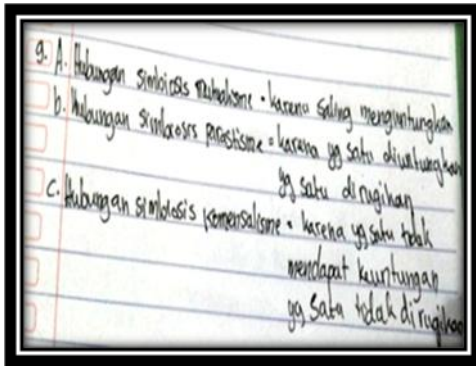 9. A. Hubungan simbiosis mutualisme = karena saling menguntungkan
b. Hubungan simbiosis parasitisme = karena yg satu diuntungkan
yg satu dirugikan
C. Hubungan simbiosis komensalisme = karena yg satu tidak
mendapat keuntungan
yg satu tidak dirugikan